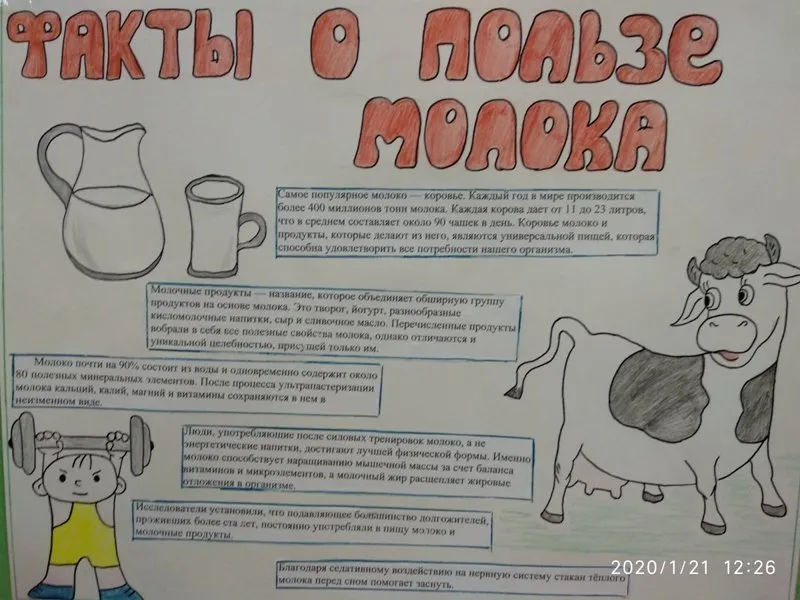 ФАКТЫ О ПОЛЬЗЕ
МОЛОКА
Самое популярное молоко — коровье. Каждый год в мире производится
более 400 миллионов тонн молока. Каждая корова дает от 11 до 23 литров,
что в среднем составляет около 90 чашек в день. Коровье молоко и
продукты, которые делают из него, являются универсальной пищей, которая
способна удовлетворить все потребности нашего организма.
Молочные продукты — название, которое объединяет обширную группу
продуктов на основе молока. Это творог, йогурт, разнообразные
кисломолочные напитки, сыр и сливочное масло. Перечисленные продукты
вобрали в себя все полезные свойства молока, однако отличаются и
уникальной целебностью, присущей только им.
Молоко почти на 90% состоит из воды и одновременно содержит около
80 полезных минеральных элементов. После процесса ультрапастеризации
молока кальций, калий, магний и витамины сохраняются в нем в
неизменном виде.
Люди, употребляющие после силовых тренировок молоко, а не
энергетические напитки, достигают лучшей физической формы. Именно
молоко способствует наращиванию мышечной массы за счет баланса
витаминов и микроэлементов, а молочный жир расщепляет жировые
отложения в организме.
Исследователи установили, что подавляющее большинство долгожителей,
проживших более ста лет, постоянно употребляли в пищу молоко и
молочные продукты.
Благодаря седативному воздействию на нервную систему стакан тёплого
молока перед сном помогает заснуть.
2020/1/21 12:26